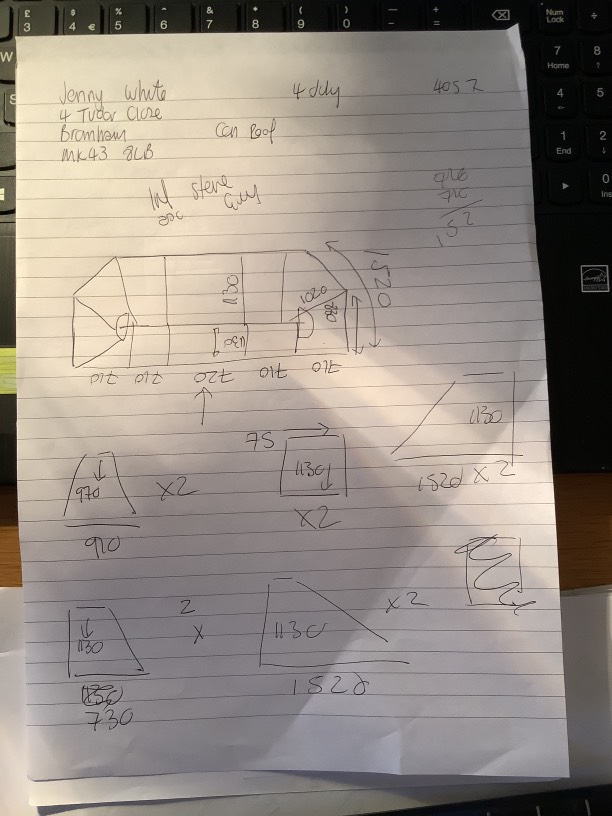 Jenny White 4 ddy 4057
4 Tudor Close
Bromham Con Roof
MK43 8LB
Steve
Guys
152
1520
1130
1020
1130
710 710 720 710 710
75
1130
970 x2
1130
910
x2
1520 x2
2
1130 x
1130 x2
730
1520
£ 3
$ 4 €
% 5
^ 6
& 7
* 8
( 9
) 0
Num Lock
7 Home
8
4
5
1 End
2
0 Ins
W